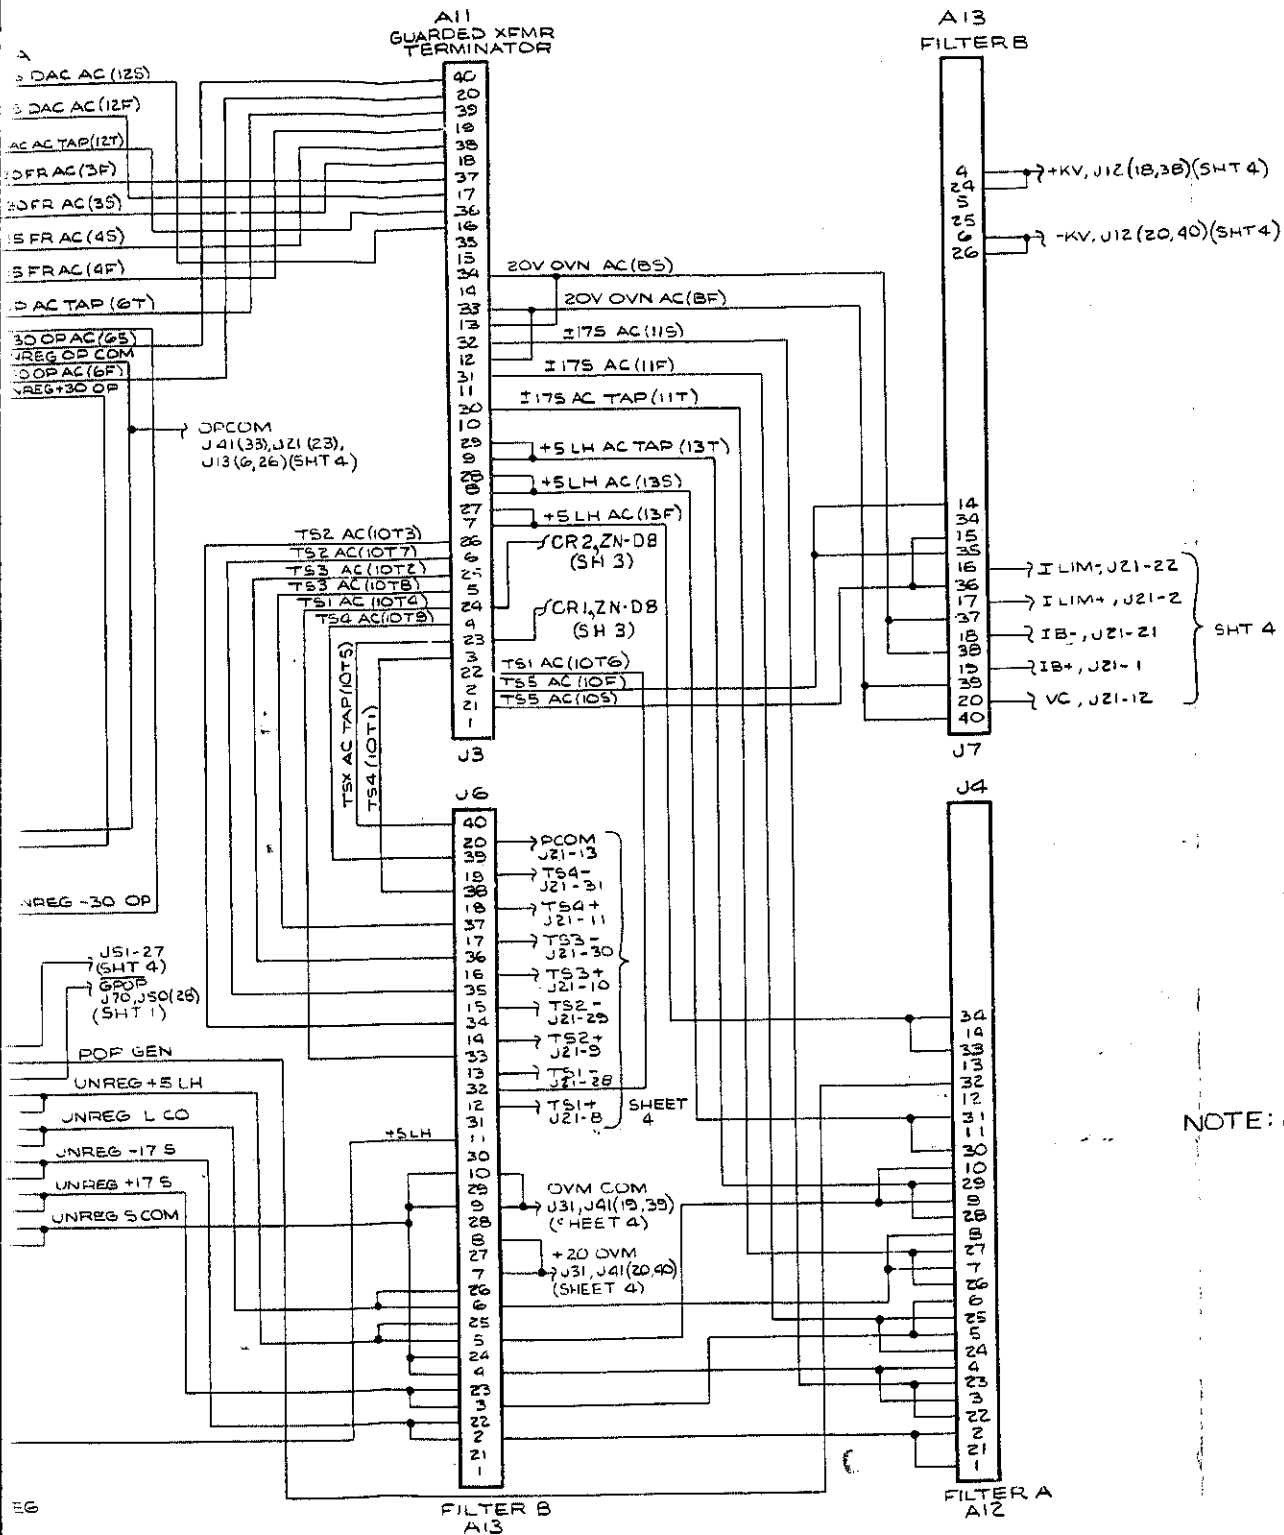 A11
GUARDED XFMR
TERMINATOR
A13
FILTER B
DAC AC (12S)
DAC AC (12F)
AC AC TAP (12T)
FR AC (3F)
FR AC (3S)
FR AC (4S)
FR AC (4F)
AC TAP (6T)
30 OP AC (6S)
NREG OP COM
OP AC (6F)
NREG +30 OP
OPCOM
J41 (33), J21 (23),
J13 (6,26) (SHT 4)
40
20
39
19
38
18
37
17
36
16
35
15
34
14
33
13
32
12
31
11
30
10
29
9
28
8
27
7
26
6
25
5
24
4
23
3
22
2
21
1
J3
20V OVN AC (8S)
20V OVN AC (8F)
±17S AC (11S)
±17S AC (11F)
±17S AC TAP (11T)
+5 LH AC TAP (13T)
+5 LH AC (13S)
+5 LH AC (13F)
CR2, ZN-D8
(SH 3)
CR1, ZN-D8
(SH 3)
TS1 AC (10T6)
TS5 AC (10F)
TS5 AC (10S)
TS2 AC (10T3)
TS2 AC (10T7)
TS3 AC (10T2)
TS3 AC (10T8)
TS1 AC (10T4)
TS4 AC (10T9)
TSX AC TAP (10T5)
TS4 (10T1)
4
24
5
25
6
26
14
34
15
35
16
36
17
37
18
38
19
39
20
40
J7
+KV, J12 (18,38) (SHT 4)
-KV, J12 (20,40) (SHT 4)
I LIM-, J21-22
I LIM+, J21-2
IB-, J21-21
IB+, J21-1
VC, J21-12
SHT 4
J6
40
20
39
19
38
18
37
17
36
16
35
15
34
14
33
13
32
12
31
11
30
10
29
9
28
8
27
7
26
6
25
5
24
4
23
3
22
2
21
1
FILTER B
A13
PCOM
J21-13
TS4-
J21-31
TS4+
J21-11
TS3-
J21-30
TS3+
J21-10
TS2-
J21-29
TS2+
J21-9
TS1-
J21-28
TS1+
J21-8
SHEET
4
OVM COM
J31, J41 (19,39)
(SHEET 4)
+20 OVM
J31, J41 (20,40)
(SHEET 4)
NREG -30 OP
J51-27
(SHT 4)
GPOP
J70, J50 (28)
(SHT 1)
POP GEN
UNREG +5 LH
UNREG L CO
UNREG -17 S
UNREG +17 S
UNREG S COM
+5 LH
J4
34
14
33
13
32
12
31
11
30
10
29
9
28
8
27
7
26
6
25
5
24
4
23
3
22
2
21
1
FILTER A
A12
NOTE:
EG